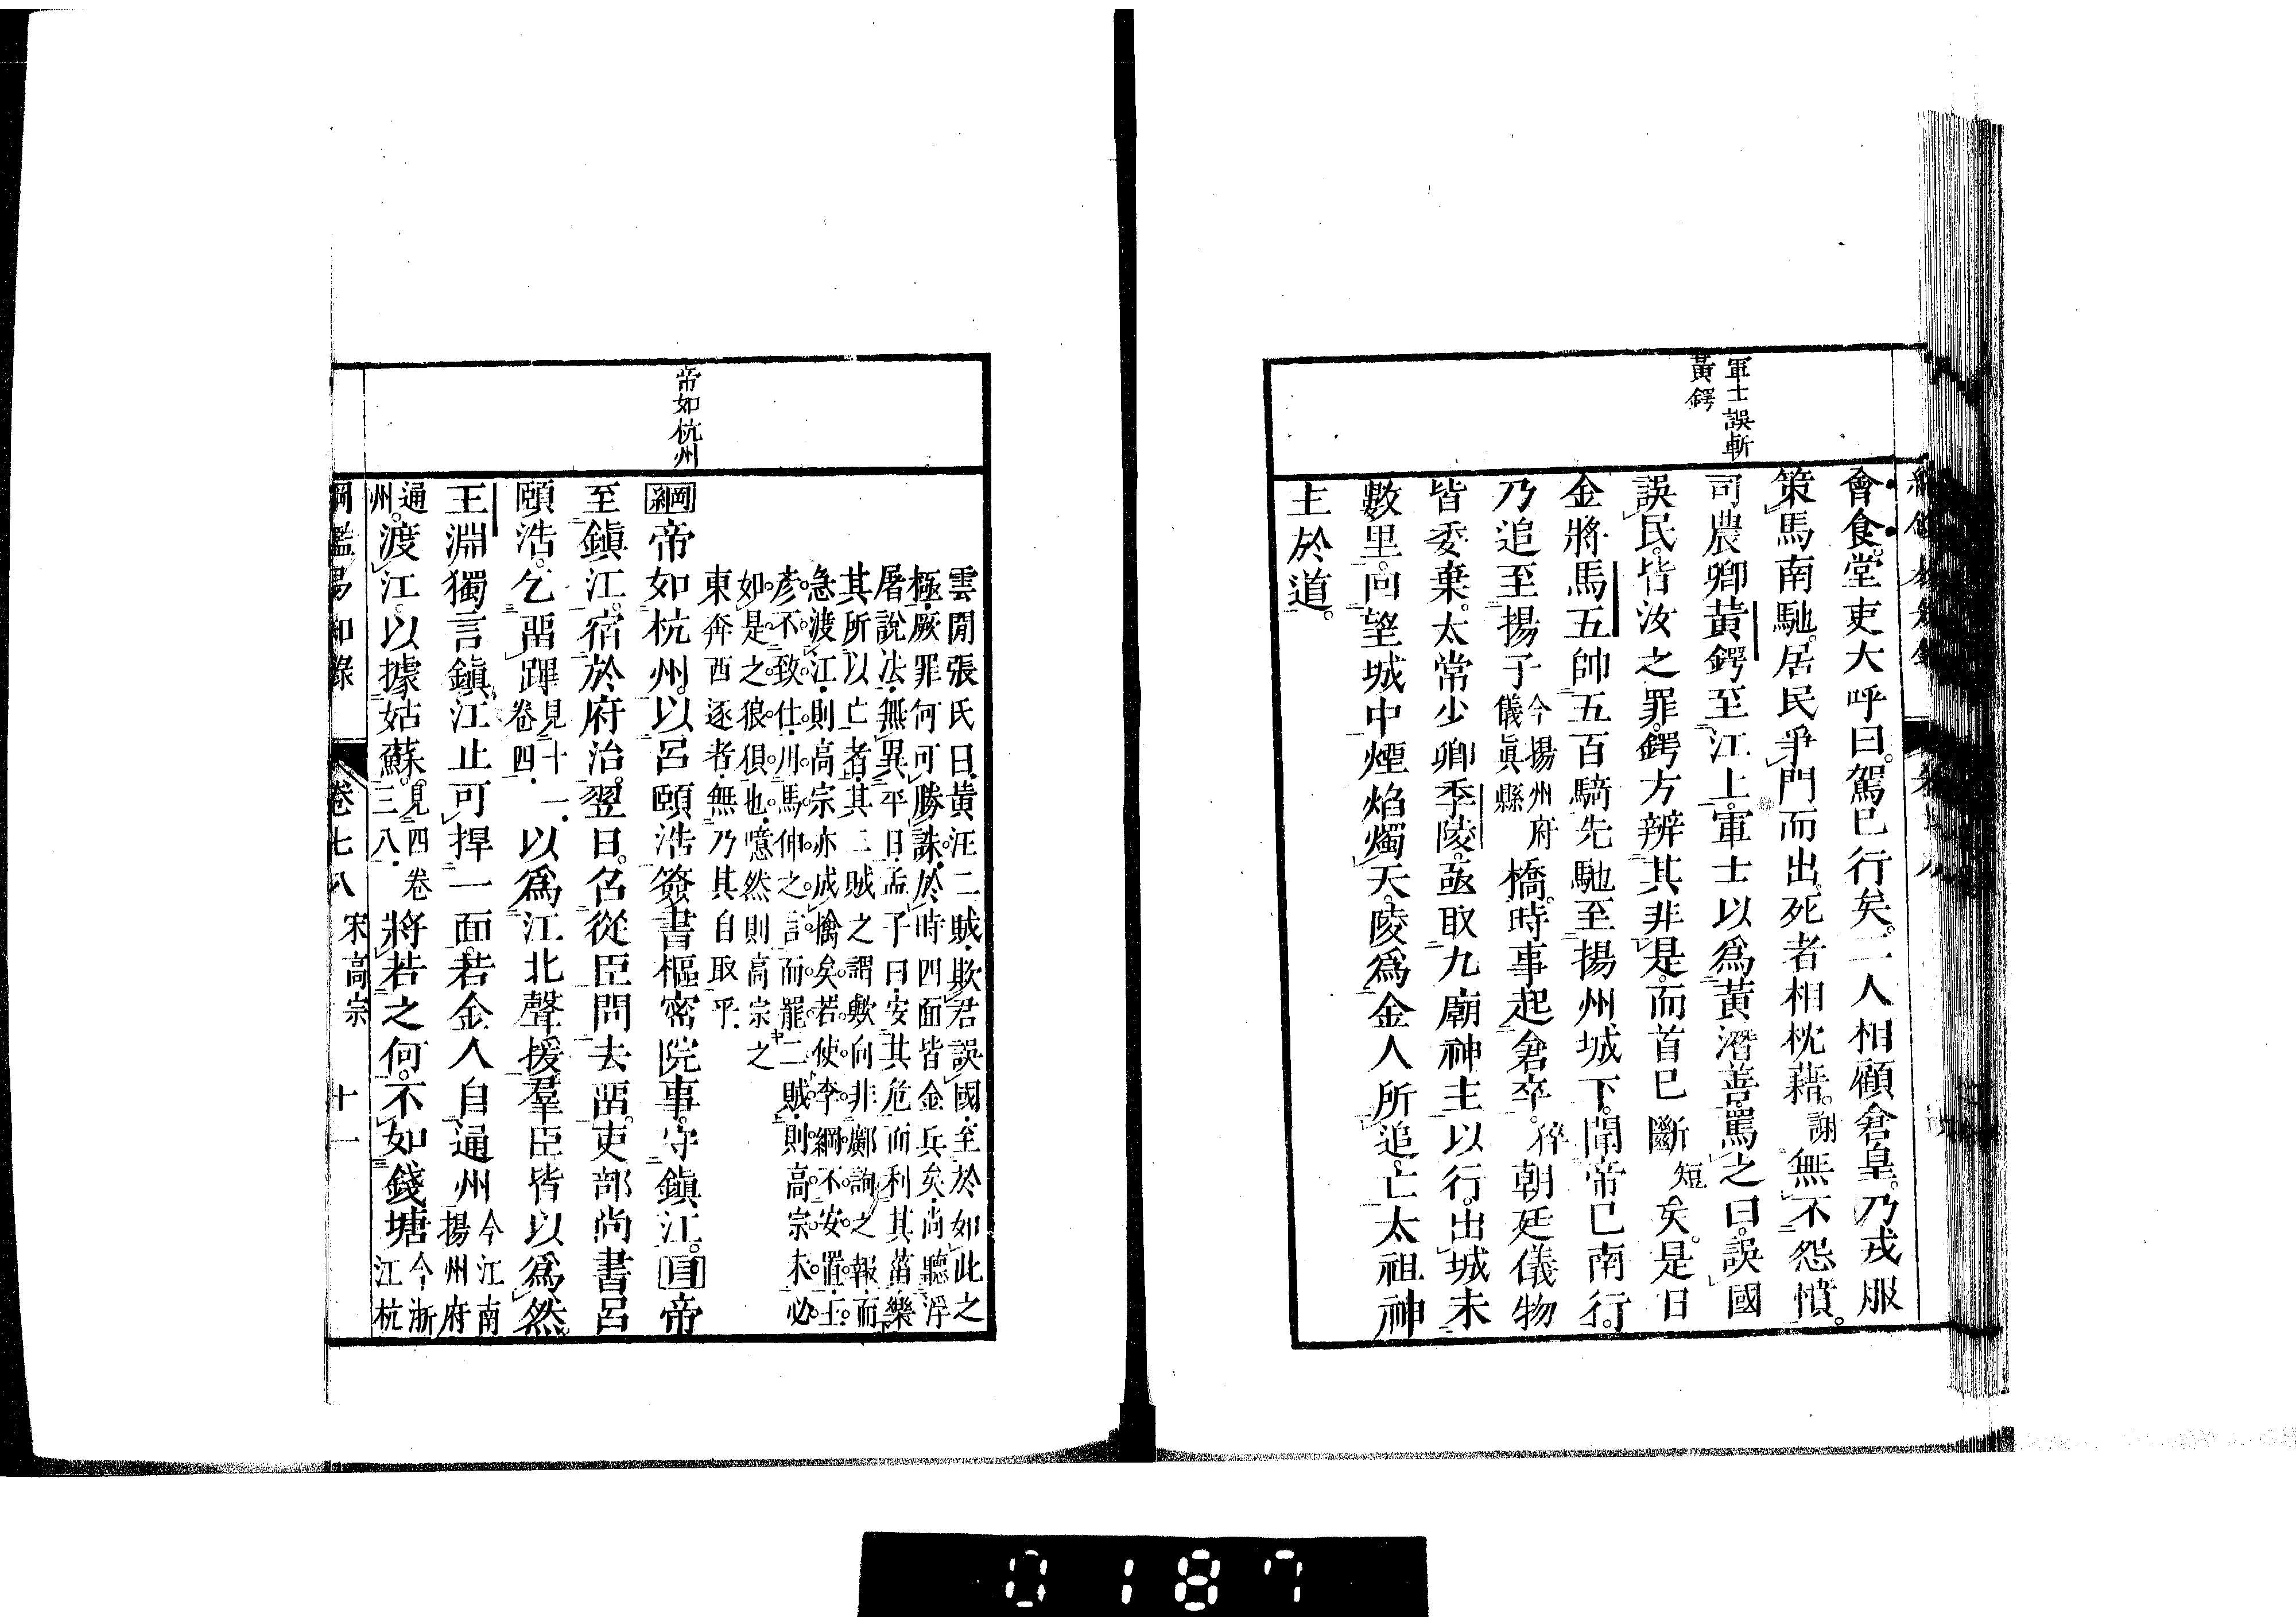 軍士誤斬
黃鍔
會食堂吏大呼曰駕已行矣二人相顧倉皇乃戎服
策馬南馳居民爭門而出死者相枕藉謝無不怨憤
司農卿黃鍔至江上軍士以爲黃潛善罵之曰誤國
誤民皆汝之罪鍔方辨其非是而首已斷短矣是日
金將馬五帥五百騎先馳至揚州城下聞帝已南行
乃追至揚子今揚州府儀眞縣橋時事起倉卒猝朝廷儀物
皆委棄太常少卿季陵亟取九廟神主以行出城未
數里回望城中煙焰燭天陵爲金人所追亡太祖神
主於道
帝如杭州
雲閒張氏曰黃汪二賊欺君誤國至於如此之
極厥罪何可勝誅於時四面皆金兵矣尚聽浮
屠說法無異平日孟子曰安其危而利其菑樂
其所以亡者其二賊之謂歟向非鄺詢之報而
急渡江則高宗亦成擒矣若使李綱不安置王
彥不致仕用馬伸之言而罷二賊則高宗未必
如是之狼狽也噫然則高宗之
東奔西逐者無乃其自取乎
綱帝如杭州以呂頤浩簽書樞密院事守鎭江目帝
至鎭江宿於府治翌日召從臣問去畱吏部尚書呂
頤浩乞畱蹕見十一卷四以爲江北聲援羣臣皆以爲然
王淵獨言鎭江止可捍一面若金人自通州今江南揚州府
通州渡江以據姑蘇見四卷三八將若之何不如錢塘今浙江杭
綱鑑易知錄 卷七八 宋高宗 十一
0187